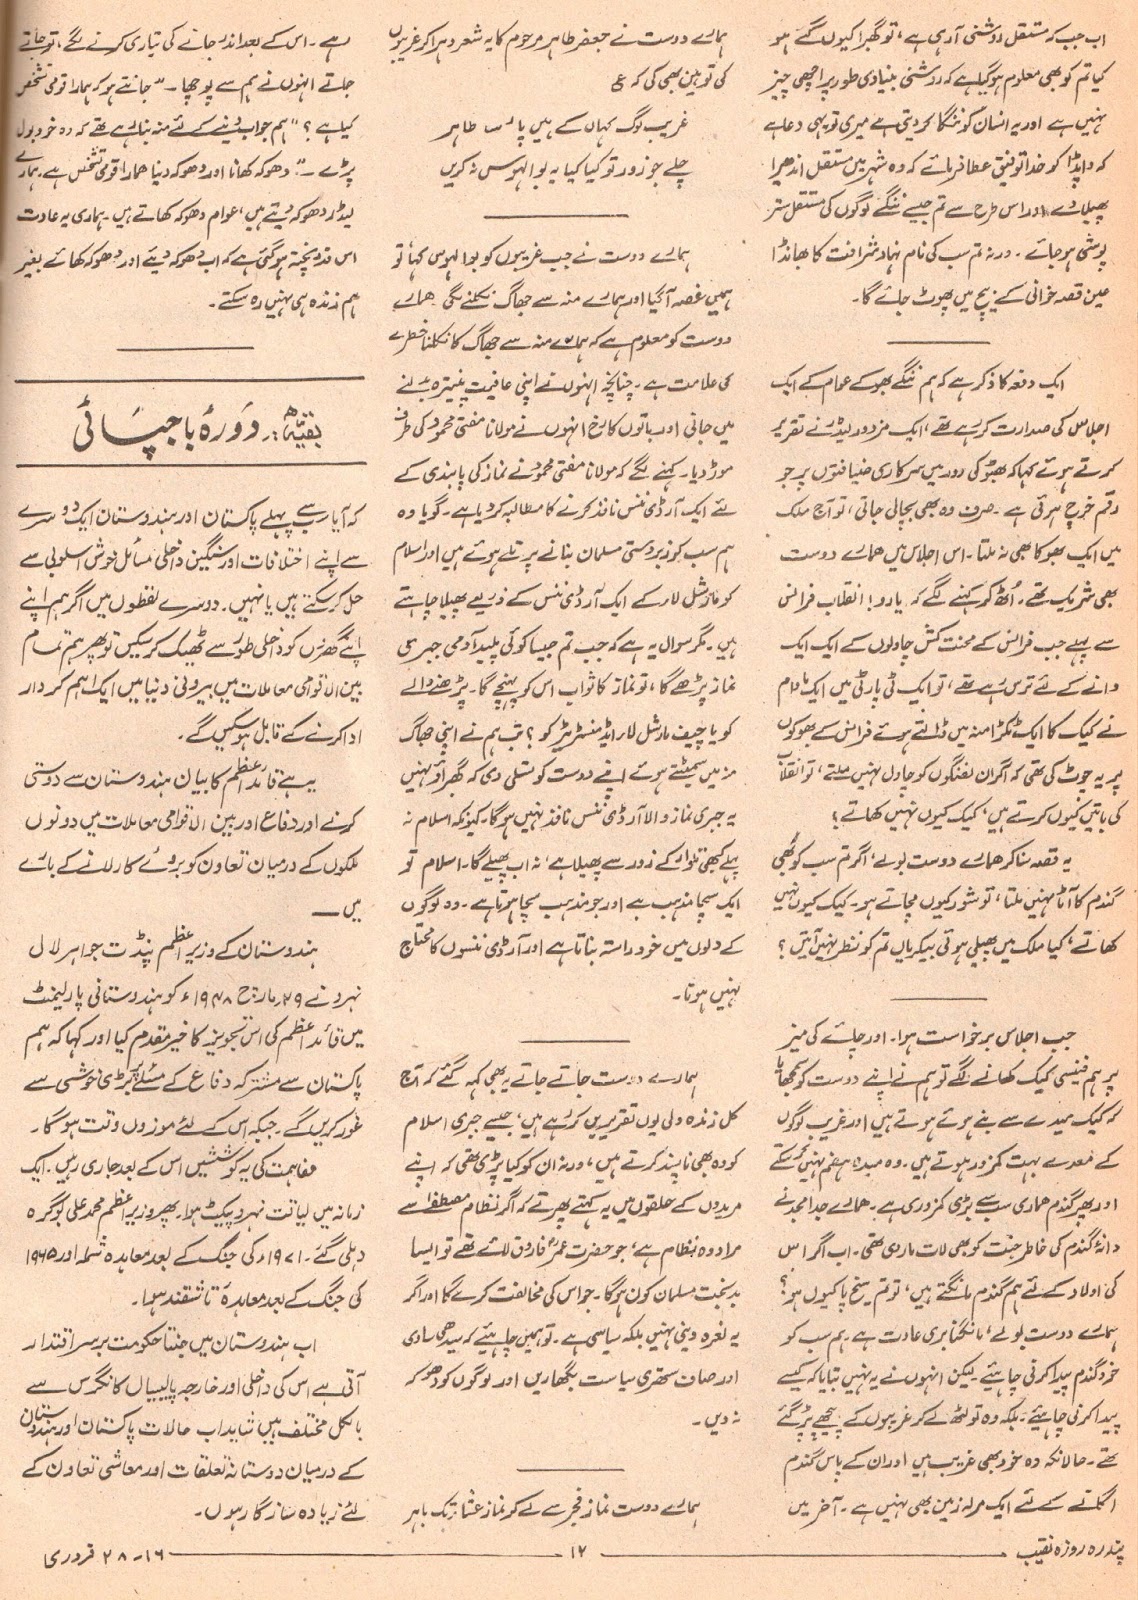 اب جب کہ مستقل روشنی آ رہی ہے، تو گھبرا کیوں گئے ہو
کیا تم کو بھی معلوم ہو گیا ہے کہ روشنی بنیادی طور پر اچھی چیز
نہیں ہے اور یہ انسان کو ننگا کر دیتی ہے میری تو یہی دعا ہے
کہ واپڈا کو خدا توفیق عطا فرمائے کہ وہ شہر میں مستقل اندھیرا
پھیلا دے، اور اس طرح سے تم جیسے ننگے لوگوں کی مستقل ستر
پوشی ہو جائے۔ ورنہ تم سب کی نام نہاد شرافت کا بھانڈا
عین قصہ خوانی کے بیچ میں پھوٹ جائے گا۔
ایک دفعہ کا ذکر ہے کہ ہم ننگے بھوکے عوام کے ایک
اجلاس کی صدارت کر رہے تھے، ایک مزدور لیڈر نے تقریر
کرتے ہوئے کہا کہ بھٹو کی دور میں سرکاری ضیافتوں پر جو
رقم خرچ ہوتی ہے۔ صرف وہ بھی بچا لی جاتی، تو آج ملک
میں ایک بھوکا بھی نہ ملتا۔ اس اجلاس میں ہمارے دوست
بھی شریک تھے۔ اُٹھ کر کہنے لگے کہ یارو! انقلاب فرانس
سے پہلے جب فرانس کے محنت کش چاولوں کے ایک ایک
دانے کے لئے ترس رہے تھے، تو ایک ٹی پارٹی میں ایک مادام
نے کیک کا ایک ٹکڑا منہ میں ڈالتے ہوئے فرانس کے بھوکوں
پر یہ چوٹ کی تھی کہ اگر ان لفنگوں کو چاول نہیں ملتے، تو انقلاب
کی باتیں کیوں کرتے ہیں، کیک کیوں نہیں کھاتے؟
یہ قصہ سنا کر ہمارے دوست بولے، اگر تم سب کو بھی
گندم کا آٹا نہیں ملتا، تو شور کیوں مچاتے ہو۔ کیک کیوں نہیں
کھاتے، کیا ملک میں پھیلی ہوئی بیکریاں تم کو نظر نہیں آتیں؟
جب اجلاس برخواست ہوا۔ اور چائے کی میز
پر ہم فینسی کیک کھانے لگے تو ہم نے اپنے دوست کو سمجھایا
کہ کیک میدے سے بنے ہوئے ہوتے ہیں اور غریب لوگوں
کے معدے بہت کمزور ہوتے ہیں۔ وہ میدہ ہضم نہیں کر سکتے
اور پھر گندم ہماری سب سے بڑی کمزوری ہے۔ ہمارے جد امجد نے
دانۂ گندم کی خاطر جنت کو بھی لات ماری تھی۔ اب اگر اس
کی اولاد کے لئے ہم گندم مانگتے ہیں، تو تم سیخ پا کیوں ہو؟
ہمارے دوست بولے، مانگنا بری عادت ہے۔ ہم سب کو
خود گندم پیدا کرنی چاہیئے۔ لیکن انہوں نے یہ نہیں بتایا کہ کیسے
پیدا کرنی چاہیئے۔ بلکہ وہ تو لٹھ لے کر غریبوں کے پیچھے پڑ گئے
تھے۔ حالانکہ وہ خود بھی غریب ہیں اور ان کے پاس گندم
اگانے کے لئے ایک مرلہ زمین بھی نہیں ہے۔ آخر میں
ہمارے دوست نے جعفر طاہر مرحوم کا یہ شعر دہرا کر غریبوں
کی توہین بھی کی کہ ع
غریب لوگ کہاں کے ہیں پارسا طاہر
چلے جو زور تو کیا کیا یہ بوالہوس نہ کریں
ہمارے دوست نے جب غریبوں کو بوالہوس کہا، تو
ہمیں غصہ آ گیا اور ہمارے منہ سے جھاگ نکلنے لگی ہمارے
دوست کو معلوم ہے کہ ہمارے منہ سے جھاگ کا نکلنا خطرے
کی علامت ہے۔ چنانچہ انہوں نے اپنی عافیت پینترہ بدلنے
میں جانی اور باتوں کا رخ انہوں نے مولانا مفتی محمود کی طرف
موڑ دیا۔ کہنے لگے کہ مولانا مفتی محمود نے نماز کی پابندی کے
لئے ایک آرڈی ننس نافذ کرنے کا مطالبہ کر دیا ہے۔ گویا وہ
ہم سب کو زبردستی مسلمان بنانے پر تلے ہوئے ہیں اور اسلام
کو مارشل لاء کے ایک آرڈی ننس کے ذریعے پھیلا چاہتے
ہیں۔ مگر سوال یہ ہے کہ جب تم جیسا کوئی پلید آدمی جبری
نماز پڑھے گا، تو نماز کا ثواب اس کو پہنچے گا۔ پڑھنے والے
کو یا چیف مارشل لاء ایڈمنسٹریٹر کو؟ تب ہم نے اپنی جھاگ
منہ میں سمیٹتے ہوئے اپنے دوست کو تسلی دی کہ گھبراؤ نہیں
یہ جبری نماز والا آرڈی ننس نافذ نہیں ہوگا۔ کیونکہ اسلام نہ
پہلے کبھی تلوار کے زور سے پھیلا ہے، نہ اب پھیلے گا۔ اسلام تو
ایک سچا مذہب ہے اور جو مذہب سچا ہوتا ہے۔ وہ لوگوں
کے دلوں میں خود راستہ بناتا ہے اور آرڈی ننسوں کا محتاج
نہیں ہوتا۔
ہمارے دوست جاتے جاتے یہ بھی کہہ گئے کہ آج
کل زندہ ولی یوں تقریریں کر رہے ہیں، جیسے جبری اسلام
کو وہ بھی ناپسند کرتے ہیں، ورنہ ان کو کیا پڑی تھی کہ اپنے
مریدوں کے حلقوں میں یہ کہتے پھرتے کہ اگر نظام مصطفےٰ سے
مراد وہ نظام ہے، جو حضرت عمر فاروق لائے تھے تو ایسا
بدبخت مسلمان کون ہوگا۔ جو اس کی مخالفت کرے گا اور اگر
یہ نعرہ دینی نہیں بلکہ سیاسی ہے۔ تو ہمیں چاہیئے کہ سیدھی سادی
اور صاف ستھری سیاست بگھاریں اور لوگوں کو دھوکہ
نہ دیں۔
ہمارے دوست نماز فجر سے لے کر نماز عشاء تک باہر
رہے۔ اس کے بعد اندر جانے کی تیاری کرنے لگے، تو جاتے
جاتے انہوں نے ہم سے پوچھا۔ "جانتے ہو کہ ہمارا قومی تشخص
کیا ہے؟" ہم جواب دینے کے لئے منہ بنا رہے تھے کہ وہ خود بول
پڑے۔ "دھوکہ کھانا اور دھوکہ دینا ہمارا قومی تشخص ہے۔ ہمارے
لیڈر دھوکہ دیتے ہیں، عوام دھوکہ کھاتے ہیں۔ ہماری یہ عادت
اس قدر پختہ ہو گئی ہے کہ اب دھوکہ دیئے اور دھوکہ کھائے بغیر
ہم زندہ ہی نہیں رہ سکتے۔
بقیہ:۔ دورۂ باجپائی
کہ آیا سب سے پہلے پاکستان اور ہندوستان ایک دوسرے
سے اپنے اختلافات اور سنگین داخلی مسائل خوش اسلوبی سے
حل کر سکتے ہیں یا نہیں۔ دوسرے لفظوں میں اگر ہم اپنے
اپنے گھروں کو داخلی طور سے ٹھیک کر سکیں تو پھر ہم تمام
بین الاقوامی معاملات میں بیرونی دنیا میں ایک اہم کردار
ادا کرنے کے قابل ہو سکیں گے۔
یہ ہے قائد اعظم کا بیان ہندوستان سے دوستی
کرنے اور دفاع اور بین الاقوامی معاملات میں دونوں
ملکوں کے درمیان تعاون کو بروئے کار لانے کے بارے
میں ـــ
ہندوستان کے وزیر اعظم پنڈت جواہر لال
نہرو نے ۲۹ مارچ ۱۹۴۸ء کو ہندوستانی پارلیمنٹ
میں قائد اعظم کی اس تجویز کا خیر مقدم کیا اور کہا کہ ہم
پاکستان سے مشترکہ دفاع کے مسئلے پر بڑی خوشی سے
غور کریں گے۔ جبکہ اس کے لئے موزوں وقت ہوگا۔
مفاہمت کی یہ کوششیں اس کے بعد جاری رہیں۔ ایک
زمانہ میں لیاقت نہرو پیکٹ ہوا۔ پھر وزیر اعظم محمد علی بوگرہ
دہلی گئے۔ ۱۹۷۱ء کی جنگ کے بعد معاہدہ شملہ اور ۱۹۶۵
کی جنگ کے بعد معاہدۂ تاشقند ہوا۔
اب ہندوستان میں جنتا حکومت برسر اقتدار
آئی ہے اس کی داخلی اور خارجہ پالیسیاں کانگرس سے
بالکل مختلف ہیں شاید اب حالات پاکستان اور ہندوستان
کے درمیان دوستانہ تعلقات اور معاشی تعاون کے
لئے زیادہ سازگار ہوں۔
پندرہ روزہ نقیب ۱۷ ۱۶-۲۸ فروری